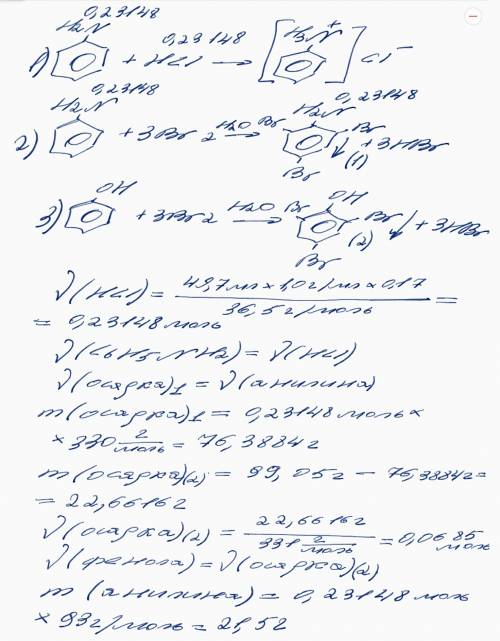 0,23148
H2N 0,23148 H3N+
1) + HCl → [ ] Cl−
0,23148 0,23148
H2N H2N
2) + 3Br2 H2O → Br Br ↓ + 3HBr
Br (1)
OH OH
3) + 3Br2 H2O → Br Br ↓ + 3HBr
Br (2)
ν(HCl) = 49,7мл × 1,0г/мл × 0,17 / 36,5г/моль =
= 0,23148 моль
ν(C6H5NH2) = ν(HCl)
ν(осадка)1 = ν(анилина)
m(осадка)1 = 0,23148 моль ×
× 330 г/моль = 76,3884г
m(осадка)(2) = 99,05г − 76,3884г =
= 22,6616г
ν(осадка)(2) = 22,6616г / 331 г/моль = 0,0685 моль
ν(фенола) = ν(осадка)(2)
m(анилина) = 0,23148 моль
× 93г/моль = 21,5г